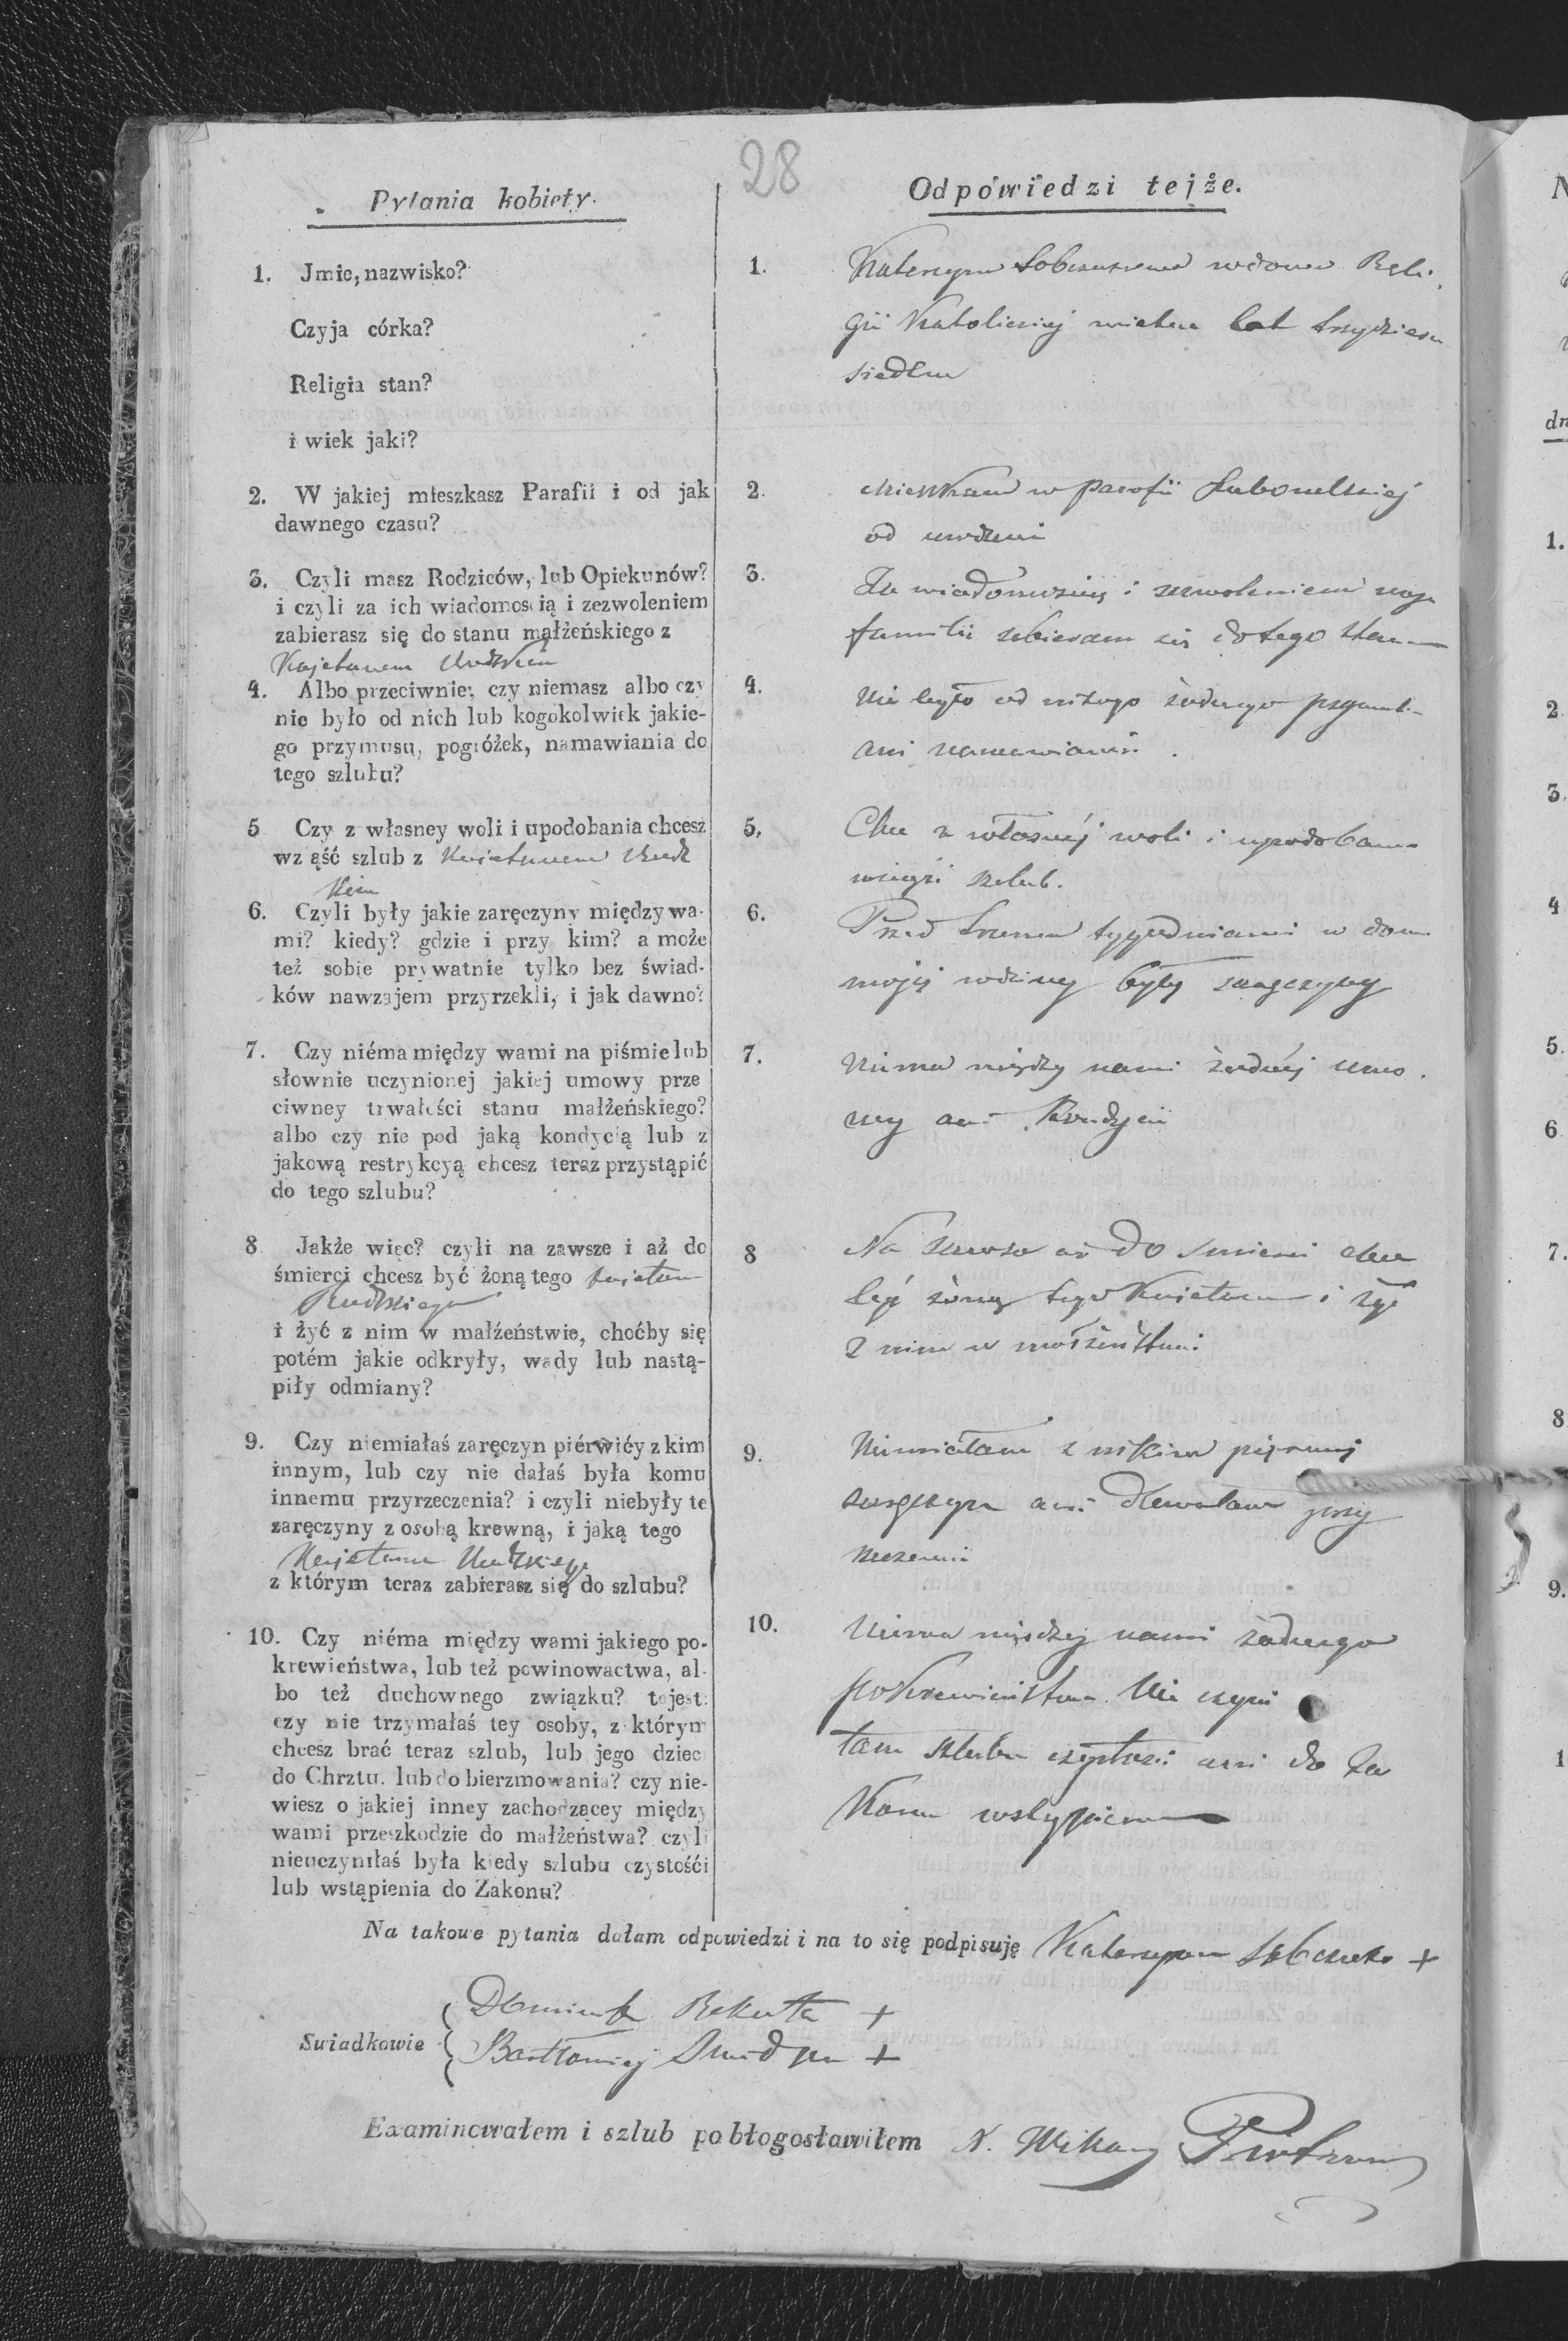 28
Pytania kobiety.
Odpowiedzi tejże.
1. Jmie, nazwisko?
Czyja córka?
Religia stan?
i wiek jaki?
1. Katarzyna wdowa Reli.
gii Katolickiej lat trzydzieści
siedem
2. W jakiej mieszkasz Parafii i od jak
dawnego czasu?
2. Mieszkam w parafii
od urodzenia
3. Czyli masz Rodziców, lub Opiekunów?
i czyli za ich wiadomością i zezwoleniem
zabierasz się do stanu małżeńskiego z
Kajetanem
3. Za wiadomością i zezwoleniem
familii zabieram się do tego stanu
4. Albo przeciwnie, czy niemasz albo czy
nie było od nich lub kogokolwiek jakie-
go przymusu, pogróżek, namawiania do
tego szlubu?
4. Nie było od nikogo żadnego
ani namawiania.
5 Czy z własney woli i upodobania chcesz
wziąść szlub z
5. Chcę z własnéj woli i upodobania
wziąść szlub.
6. Czyli były jakie zaręczyny między wa-
mi? kiedy? gdzie i przy kim? a może
też sobie prywatnie tylko bez świad-
ków nawzajem przyrzekli, i jak dawno?
6. Przed trzema tygodniami w domu
mojéj rodziny były zaręczyny
7. Czy niéma między wami na piśmie lub
słownie uczynionej jakiej umowy prze
ciwney trwałości stanu małżeńskiego?
albo czy nie pod jaką kondycią lub z
jakową restrykcyą chcesz teraz przystąpić
do tego szlubu?
7. Niema między nami żadnéj umo.
wy ani kondycii
8 Jakże więc? czyli na zawsze i aż do
śmierci chcesz być żoną tego
i żyć z nim w małżeństwie, choćby się
potém jakie odkryły, wady lub nastą-
piły odmiany?
8 Na zawsze aż do śmierci chcę
być żoną tego Kajetana i żyć
z nim w małżeństwie
9. Czy niemiałaś zaręczyn piérwiéy z kim
innym, lub czy nie dałaś była komu
innemu przyrzeczenia? i czyli niebyły te
zaręczyny z osobą krewną, i jaką tego
Kajetana
z którym teraz zabierasz się do szlubu?
9. Niemiałam z nikim
zaręczyn ani dawałam przy
rzeczenia
10. Czy niéma między wami jakiego po-
krewieństwa, lub też powinowactwa, al-
bo też duchownego związku? to jest:
czy nie trzymałaś tey osoby, z którym
chcesz brać teraz szlub, lub jego dzieci
do Chrztu. lub do bierzmowania? czy nie-
wiesz o jakiej inney zachodzacey między
wami przeszkodzie do małżeństwa? czyli
nieuczyniłaś była kiedy szlubu czystośći
lub wstąpienia do Zakonu?
10. Niema między nami żadnego
pokrewieństwa. Nie czyni
łam szlubu czystości ani do Za
konu wstąpienia
Na takowe pytania dałam odpowiedzi i na to się podpisuję Katarzyna +
Swiadkowie Dominik Rekuta +
Bartłomiej +
Examinowałem i szlub pobłogosławiłem X. Wikary